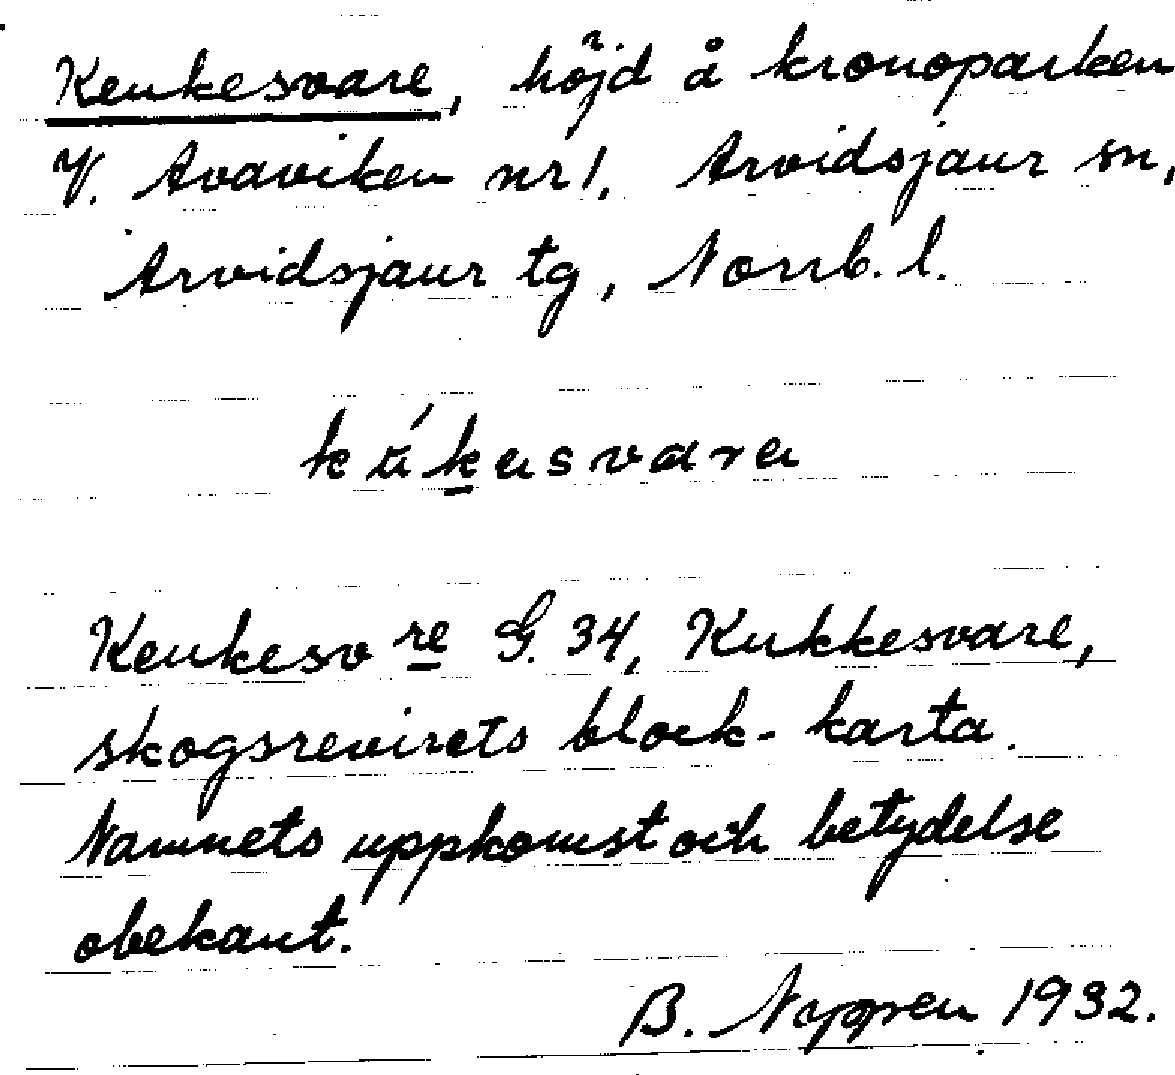 Keukesvare, höjd å kronoparken
V. Avaviken nr 1, Arvidsjaur sn,
Arvidsjaur tg, Norrb. l.
Keukesvre G. 34, Kukkesvare,
skogsrevirets block-karta.
Namnets uppkomst och betydelse
obekant.
B. Nyppen 1932.